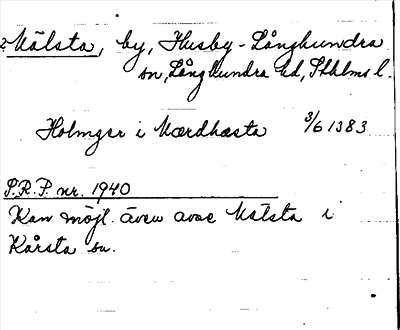 ? Målsta, by, Husby-Långhundra
sn, Långhundra hd, Sthlms l.
Holmger i Mærdhasta 3/6 1383
S.R.P. nr. 1940
Kan möjl. även avse Målsta i
Kårsta sn.